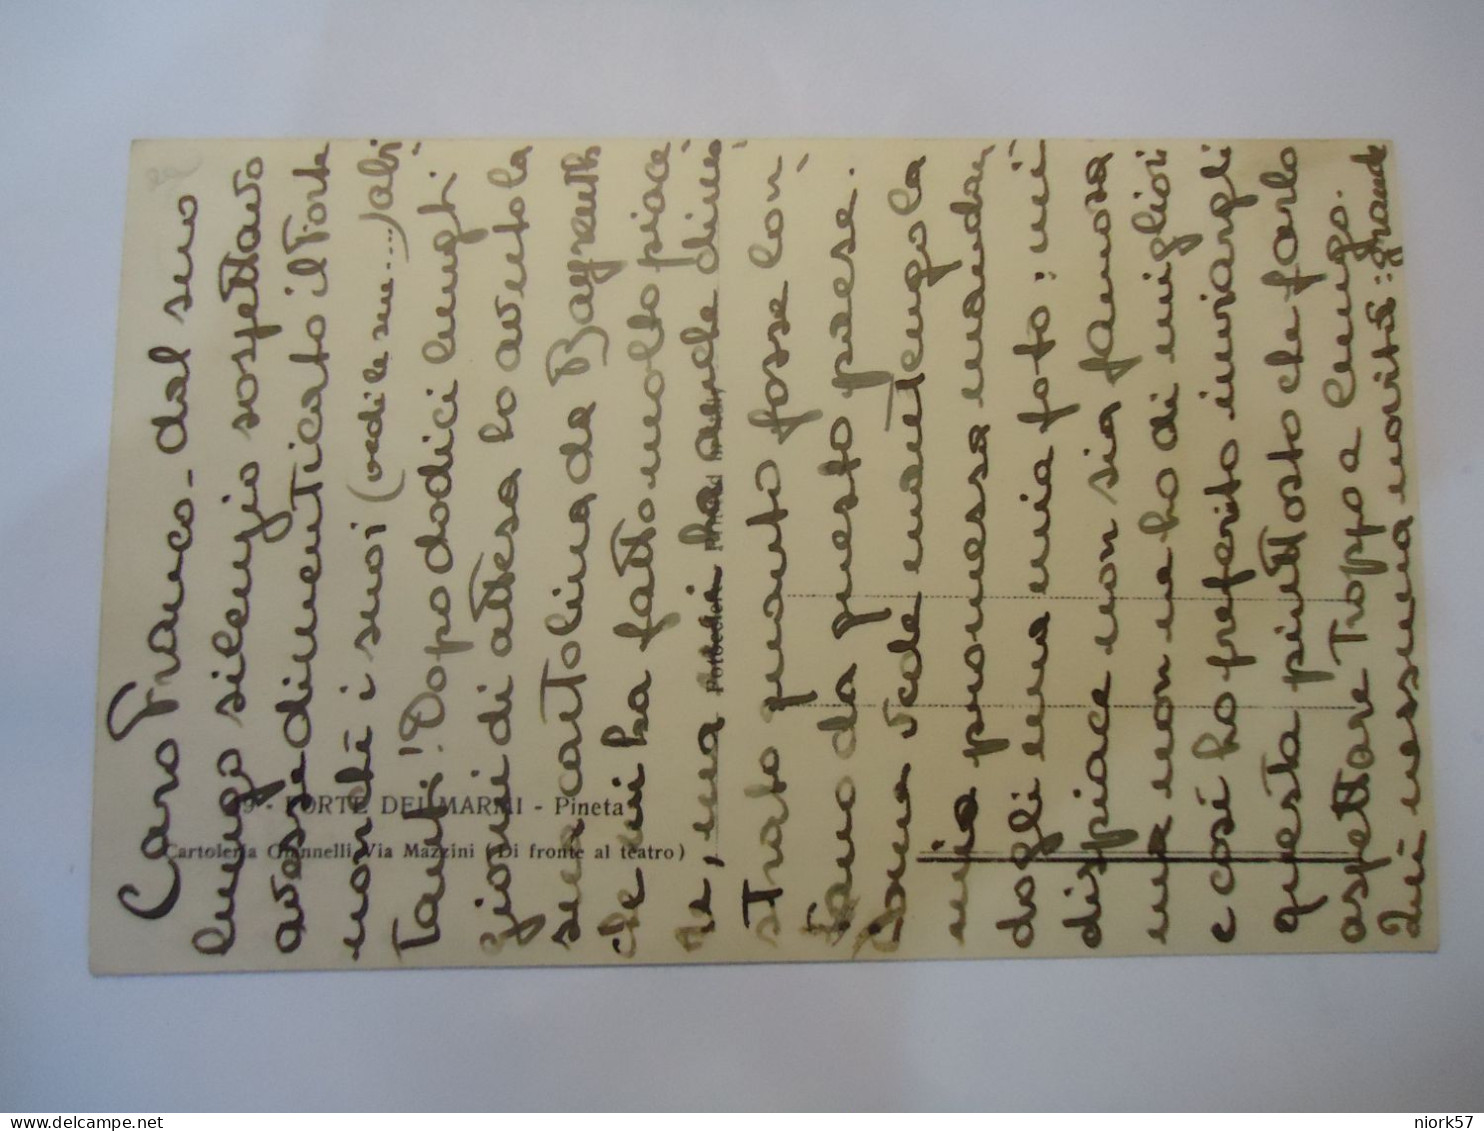 Caro Franco - dal suo
lungo silenzio sospettavo
avesse dimenticato il Forte
nonchè i suoi (vedi le su.....) abi-
tanti! Dopo dodici lunghi
giorni di attesa ho avuto la
sua cartolina da Bayreuth
che mi ha fatto molto piace-
re, ma mi ha anche dimo-
strato quanto fosse lon-
tano da questo paese.
Come vede mantengo la
mia promessa mandan-
dogli una mia foto: mi
dispiace non sia famosa
ma non ne ho di migliori
e così ho preferito inviargli
questa piuttosto che farlo
aspettare troppo a lungo.
Qui nessuna novità: grande
29 - FORTE DEI MARMI - Pineta
Cartoleria Giannelli Via Mazzini (Di fronte al teatro)
niork57